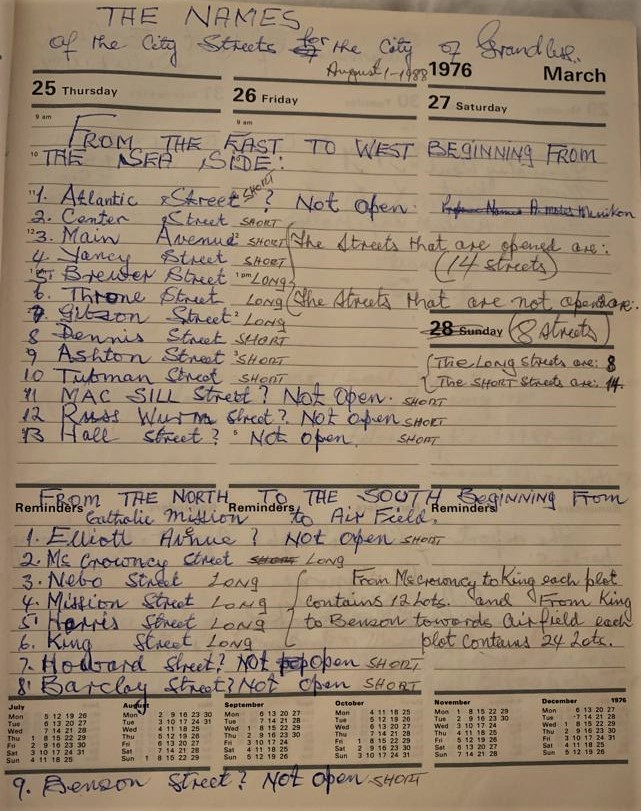 THE NAMES
of the City Streets for the City of Grandbess.
August 1-1988
1976 March
25 Thursday 26 Friday 27 Saturday
9 am 9 am
FROM THE EAST TO WEST BEGINNING FROM
10 THE SEA SIDE:
11 1. Atlantic Street SHORT ? Not Open.
2. Center Street SHORT
12 3. Main Avenue SHORT (The Streets that are opened are:
4. Yancy Street SHORT (14 streets)
5. Brewer Street 1 pm LONG
6. Throne Street LONG (The Streets that are not opened are:
7. Gibson Street 2 LONG
28 Sunday (8 Streets)
8 Dennis Street SHORT
9 Ashton Street 3 SHORT (The LONG Streets are: 8
10 Tubman Street SHORT The SHORT Streets are: 14.
11 MAC SILL Street? Not Open. SHORT
12 Russ Wurm Street? Not Open SHORT
13 Hall Street? 6 Not open. SHORT
FROM THE NORTH TO THE SOUTH Beginning From
Reminders Reminders Reminders
Catholic Mission to Air Field.
1. Elliott Avenue ? Not Open SHORT
2. Mc Crowncy Street SHORT LONG
3. Nebo Street LONG From McCrowncy to King each plot
4. Mission Street LONG contains 12 Lots. and From King
5. Harris Street LONG to Benson towards Airfield each
6. King Street LONG plot contains 24 Lots.
7. Howard Street? Not open SHORT
8. Barclay Street? Not Open SHORT
July August September October November December 1976
Mon 5 12 19 26 Mon 2 9 16 23 30 Mon 6 13 20 27 Mon 4 11 18 25 Mon 1 8 15 22 29 Mon 6 13 20 27
Tue 6 13 20 27 Tue 3 10 17 24 31 Tue 7 14 21 28 Tue 5 12 19 26 Tue 2 9 16 23 30 Tue 7 14 21 28
Wed 7 14 21 28 Wed 4 11 18 25 Wed 1 8 15 22 29 Wed 6 13 20 27 Wed 3 10 17 24 Wed 1 8 15 22 29
Thu 1 8 15 22 29 Thu 5 12 19 26 Thu 2 9 16 23 30 Thu 7 14 21 28 Thu 4 11 18 25 Thu 2 9 16 23 30
Fri 2 9 16 23 30 Fri 6 13 20 27 Fri 3 10 17 24 Fri 1 8 15 22 29 Fri 5 12 19 26 Fri 3 10 17 24 31
Sat 3 10 17 24 31 Sat 7 14 21 28 Sat 4 11 18 25 Sat 2 9 16 23 30 Sat 6 13 20 27 Sat 4 11 18 25
Sun 4 11 18 25 Sun 1 8 15 22 29 Sun 5 12 19 26 Sun 3 10 17 24 31 Sun 7 14 21 28 Sun 5 12 19 26
9. Benson Street? Not Open SHORT